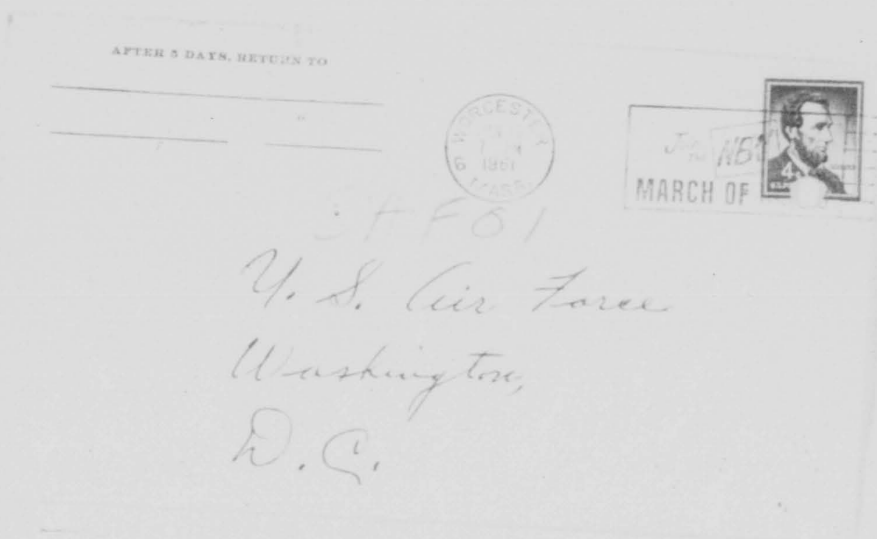 AFTER 5 DAYS, RETURN TO
WORCESTER
6
1961
MASS.
Join the
MARCH OF
4
U. S. Air Force
Washington,
D. C.